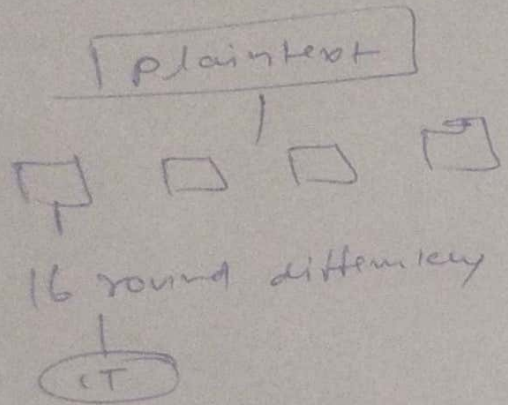 plaintext
16 round differn key
CT